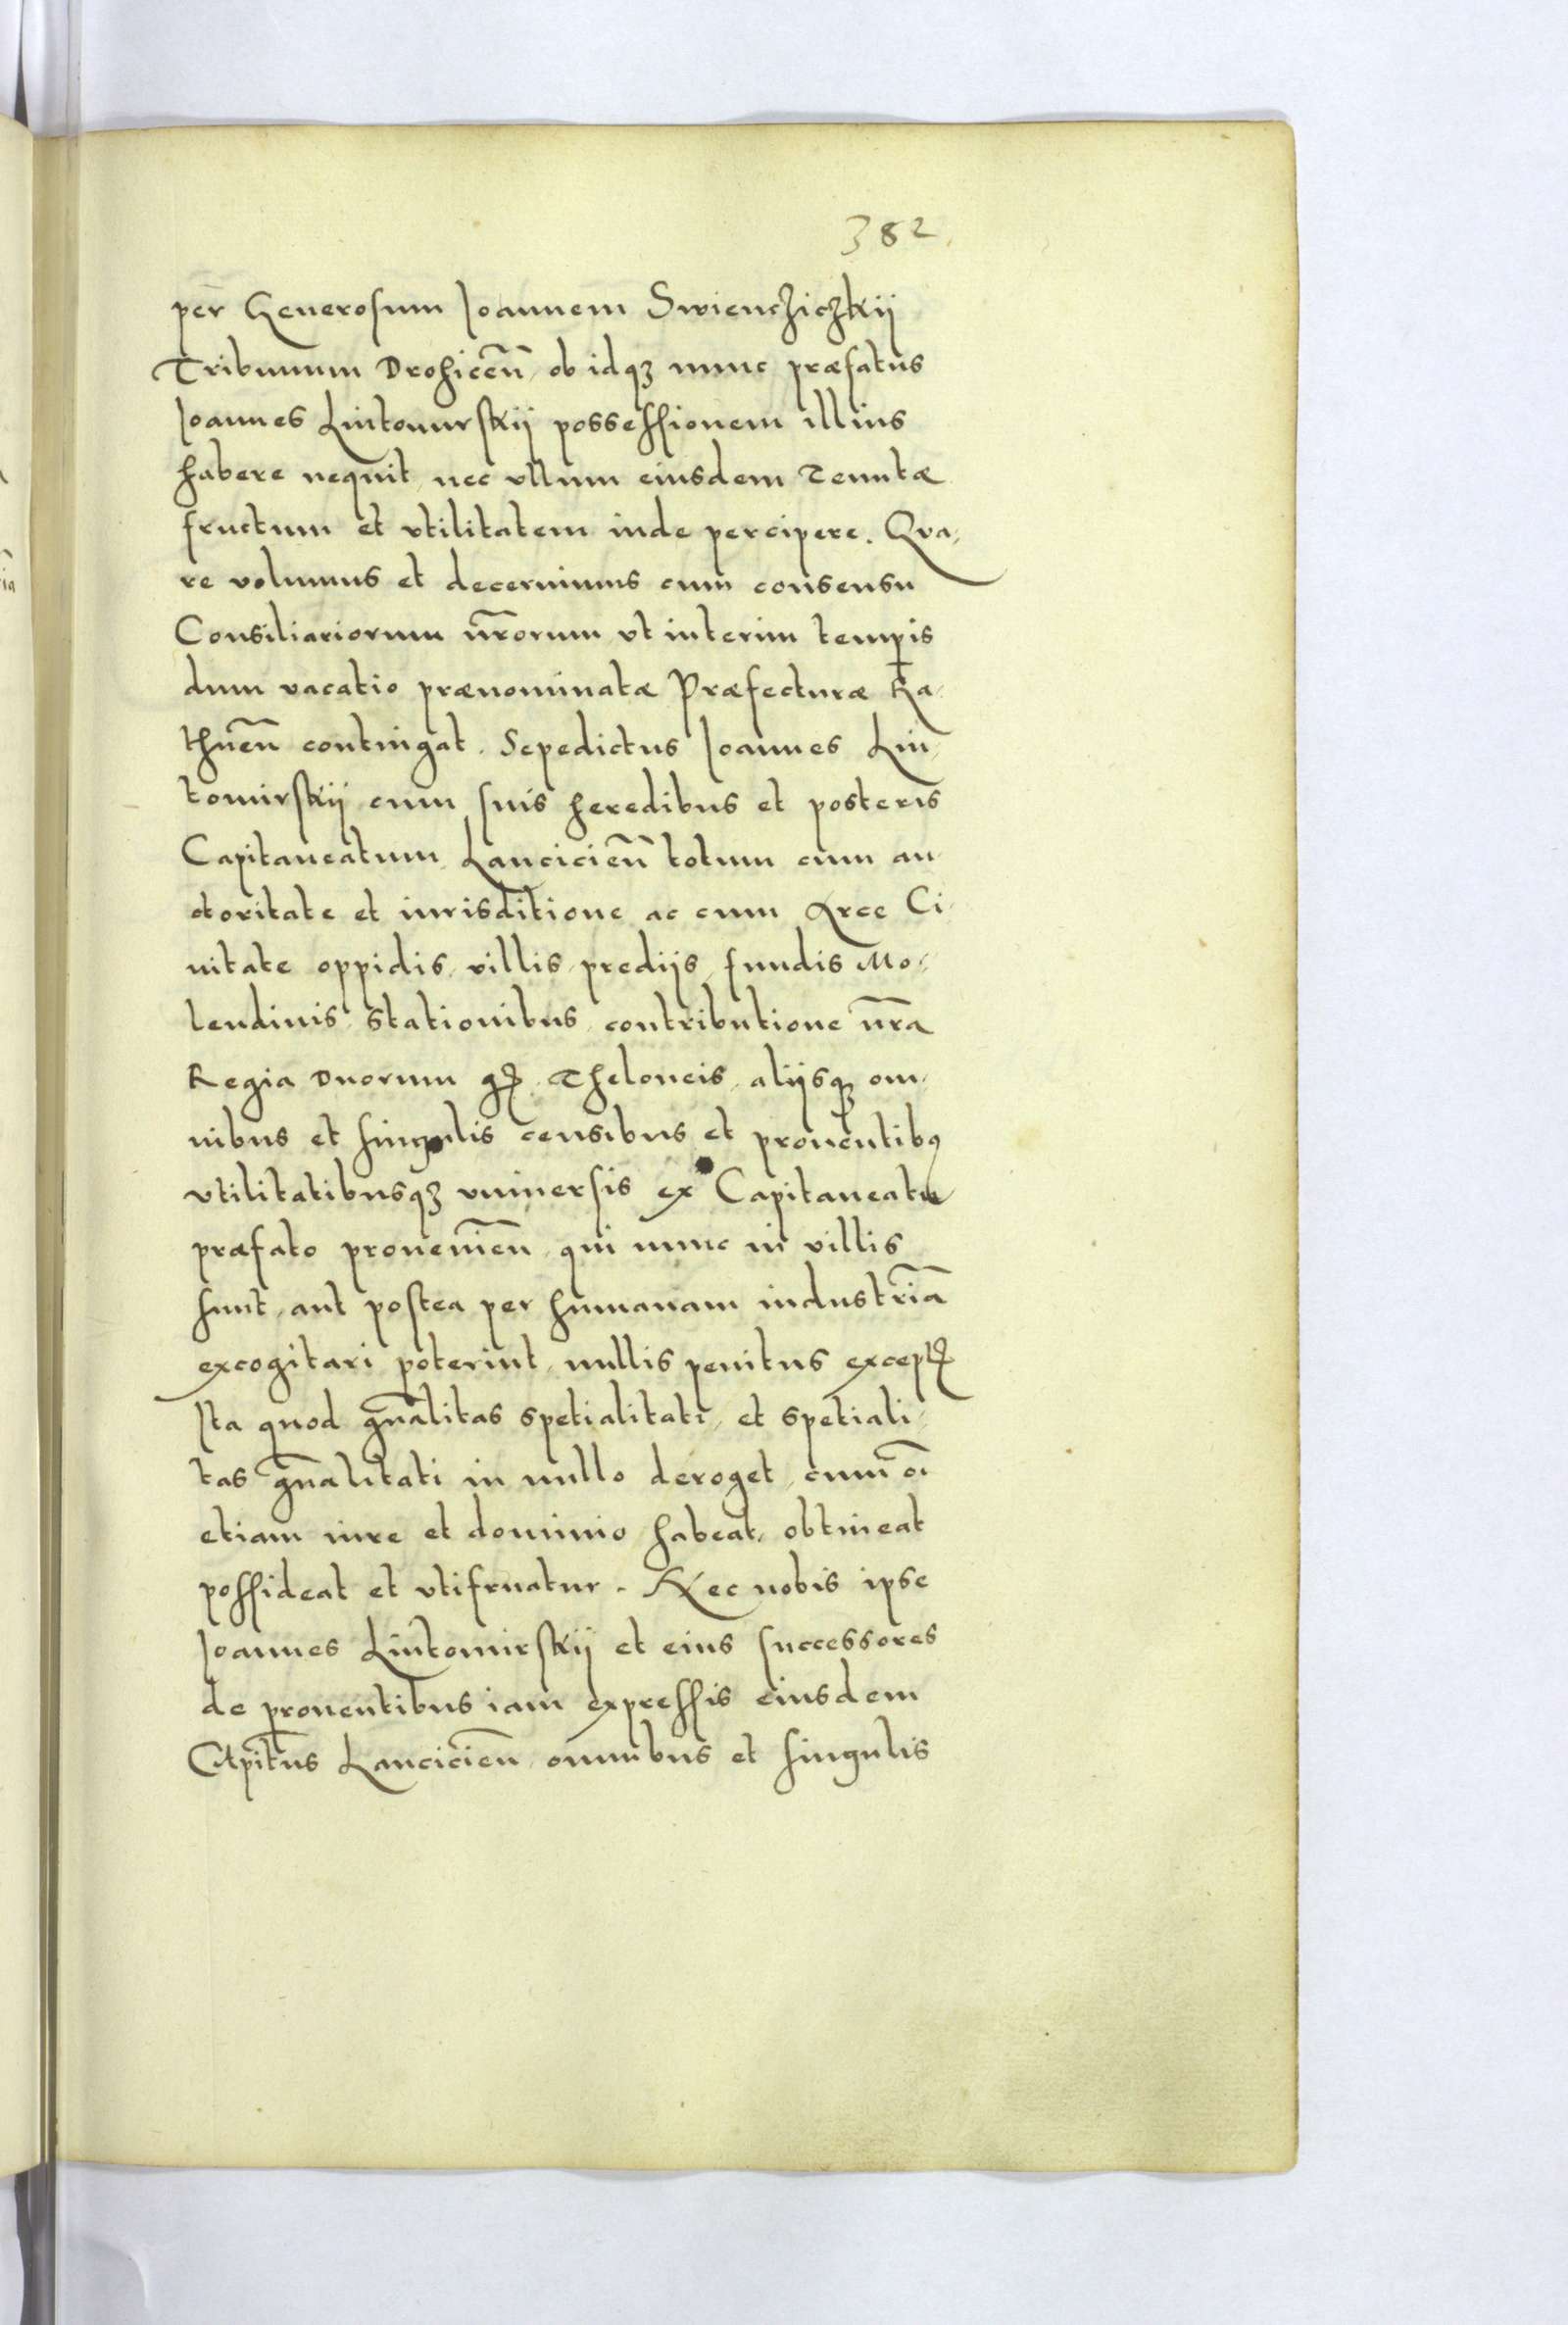 382
per Generosum Joannem Swiencziczkij
Tribunum Drohicen̄, ob idqꝫ nunc præfatus
Joannes Lutomirskij possessionem illius
habere nequit, nec vllum eiusdem Tenutæ
fructum et vtilitatem inde percipere. Qva,
re volumus et decernimus cum consensu
Consiliariorum nr̄orum vt interim temp̄is
dum vacatio prænominatæ Præfecturæ Ra,
thnen̄ contingat. Sepedictus Joannes Lu,
tomirskij cum suis heredibus et posteris
Capitaneatum Lancicien̄ totum cum au,
ctoritate et iurisditione ac cum Arce Ci,
uitate oppidis, villis, predijs, fundis Mo,
lendinis, stationibus, contributione nr̄a
Regia Duorum gꝝ, Theloneis, alijsqꝫ om,
nibus et singulis censibus et prouentibꝯ
vtilitatibusqꝫ vniuersis ex Capitaneatu
præfato prouenien̄, qui nunc in villis
sunt, aut postea per humanam industriā
excogitari poterint, nullis penitus exceptꝭ
Ita quod gn̄alitas spetialitati, et spetiali,
tas gn̄alitati in nullo deroget, cum oī
etiam iure et dominio habeat, obtineat
possideat et vtifruatur. Hec nobis ipse
Joannes Lutomirskij et eius successores
de prouentibus iam expressis eiusdem
Cap̄itus Lancicien̄, omnibus et singulis